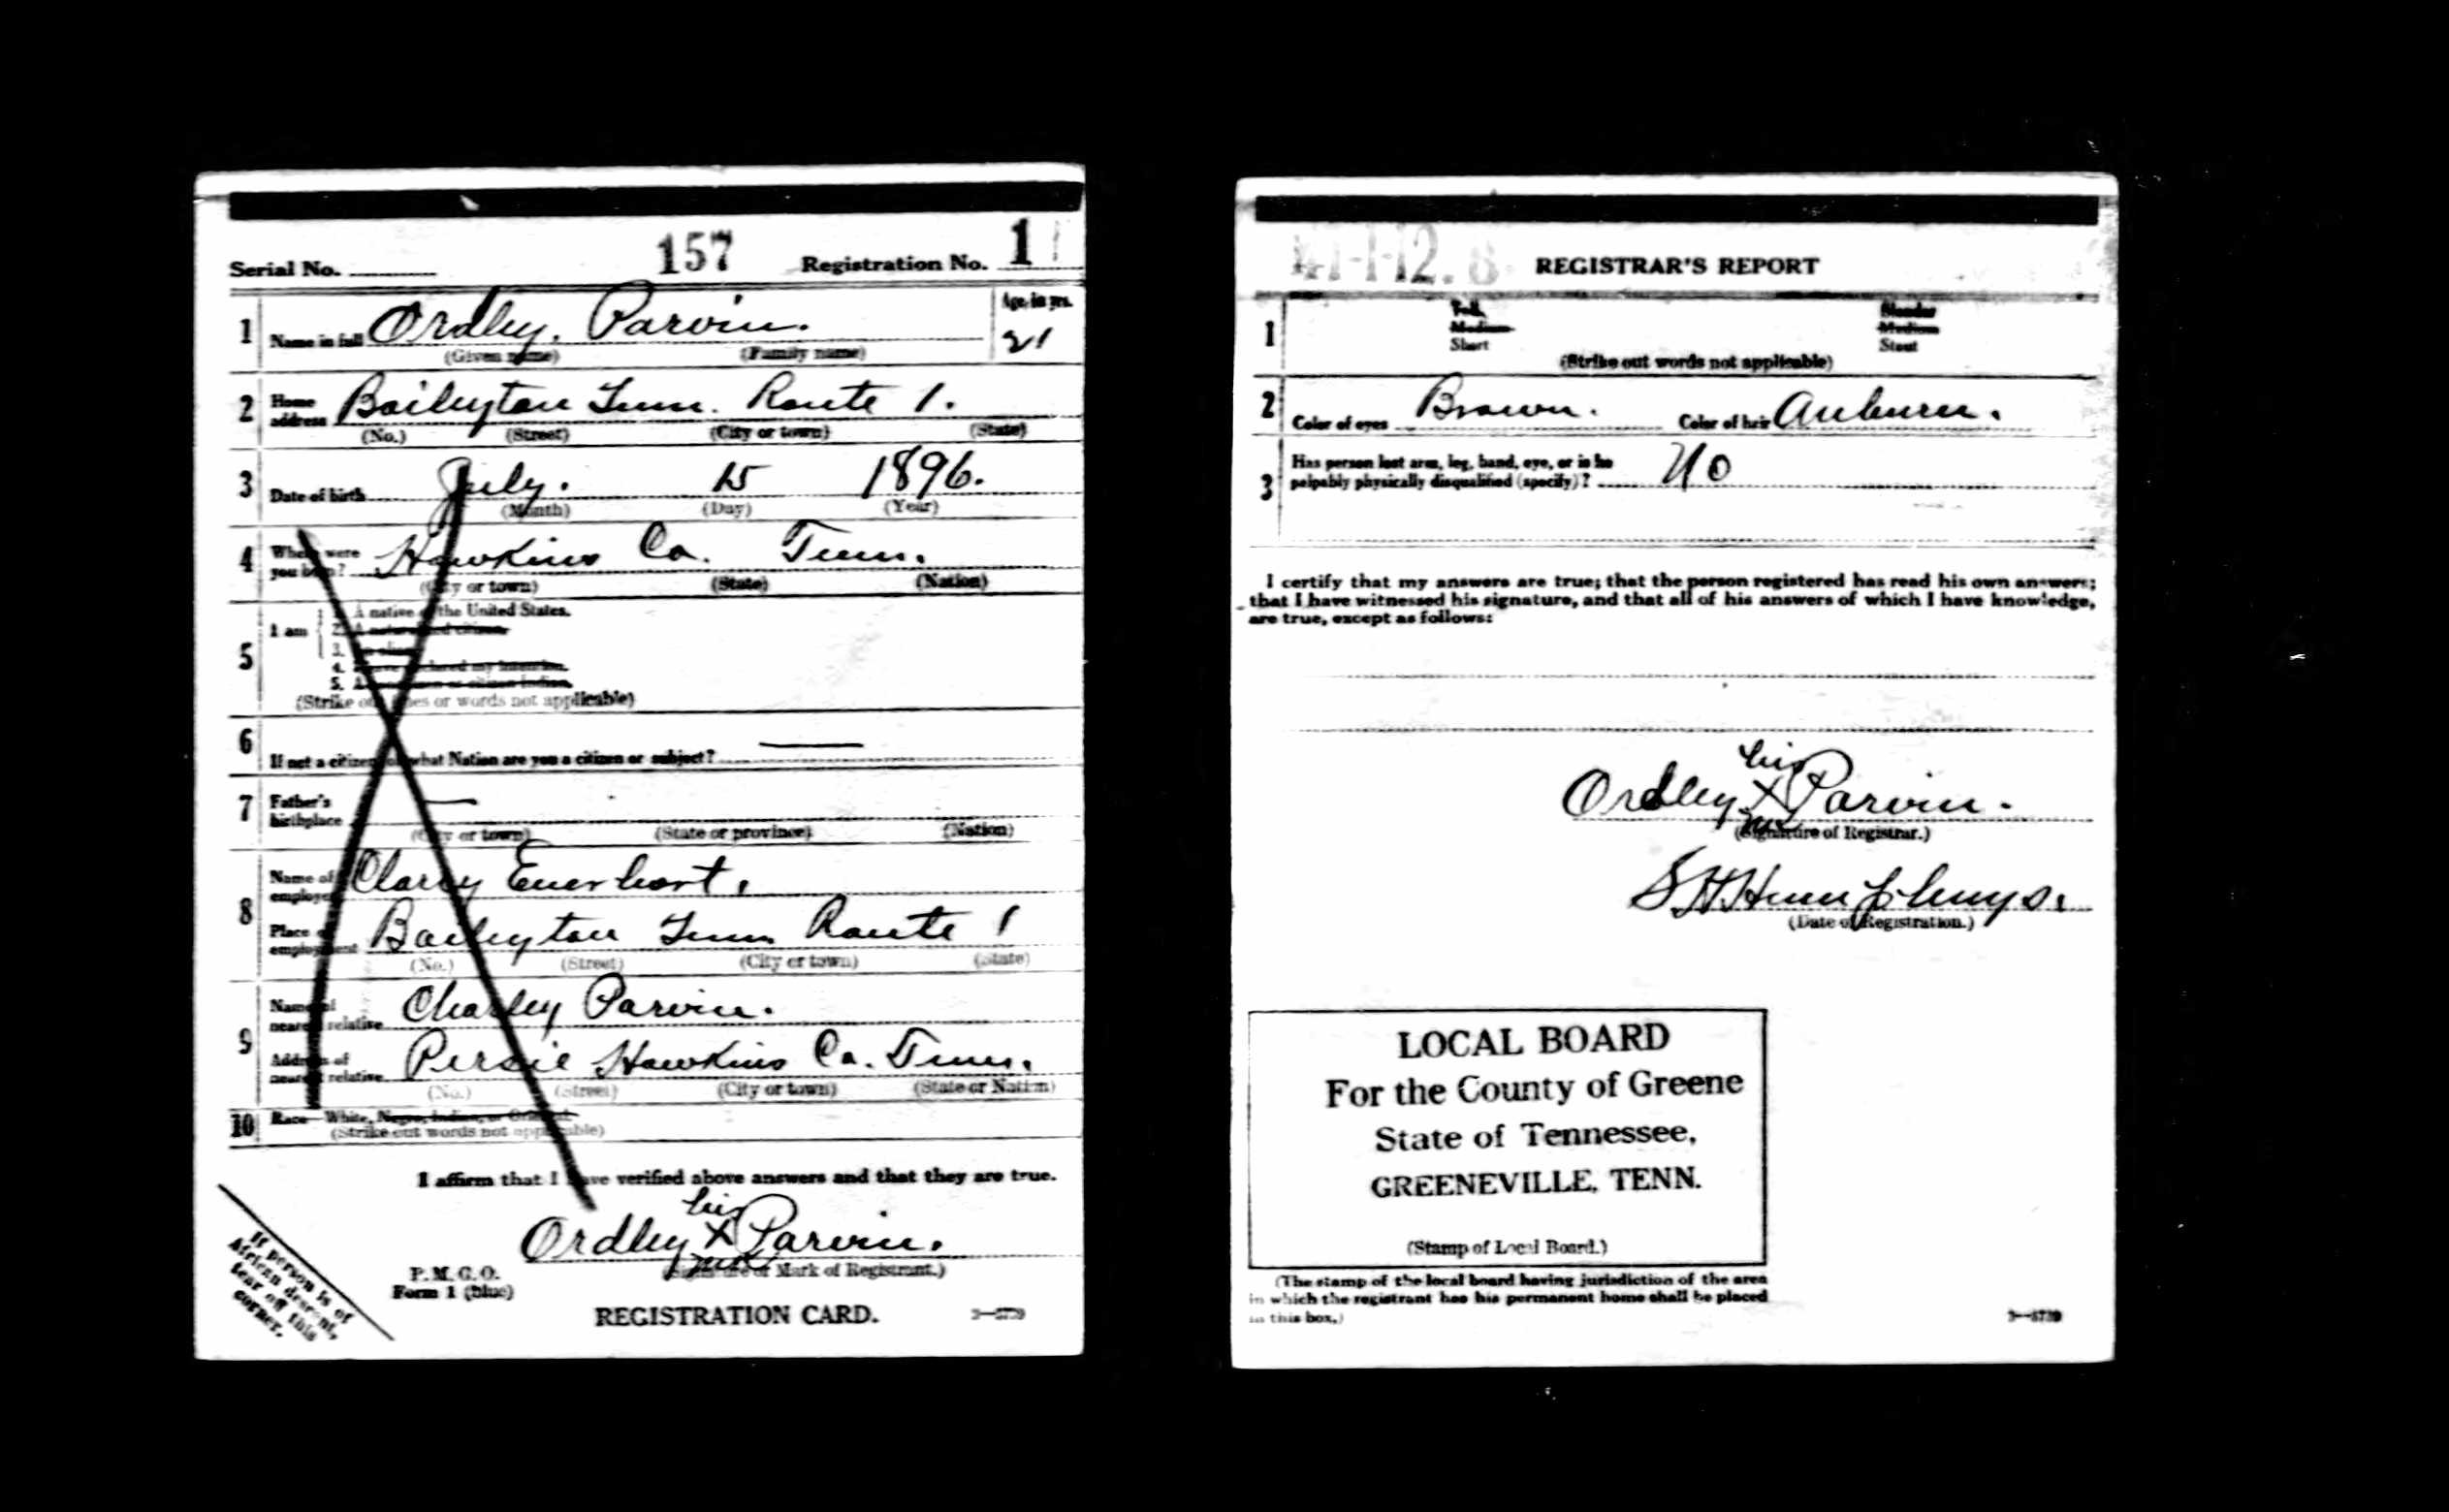 Serial No. 157 Registration No. 1
1 Name in full Ordley. Parvin. Age, in yrs. 21
(Given name) (Family name)
2 Home address Baileyton Tenn. Route 1.
(No.) (Street) (City or town) (State)
3 Date of birth July. 15 1896.
(Month) (Day) (Year)
4 Where were you born? Hawkins Co. Tenn.
(City or town) (State) (Nation)
5 I am
1. A native of the United States.
2. A naturalized citizen.
3. An alien.
4. I have declared my intention.
5. A noncitizen or citizen Indian.
(Strike out lines or words not applicable)
6 If not a citizen, of what Nation are you a citizen or subject?
7 Father's birthplace
(City or town) (State or province) (Nation)
8 Name of employer Everhart.
Place of employment Baileyton Tenn Route 1
(No.) (Street) (City or town) (State)
9 Name of nearest relative Charley Parvin.
Address of nearest relative Persie Hawkins Co. Tenn.
(No.) (Street) (City or town) (State or Nation)
10 Race—White, Negro, Indian, or Oriental.
(Strike out words not applicable)
I affirm that I have verified above answers and that they are true.
his
Ordley X Parvin.
mark
(Signature or Mark of Registrant.)
P. M. G. O.
Form 1 (blue)
REGISTRATION CARD.
If person is of
African descent,
tear off this
corner.
REGISTRAR'S REPORT
1 Tall Slender
Medium Medium
Short Stout
(Strike out words not applicable)
2 Color of eyes Brown. Color of hair Auburn.
3 Has person lost arm, leg, hand, eye, or is he
palpably physically disqualified (specify)? No
I certify that my answers are true; that the person registered has read his own answers;
that I have witnessed his signature, and that all of his answers of which I have knowledge,
are true, except as follows:
his
Ordley X Parvin.
(Signature of Registrar.)
S H Humphreys.
(Date of Registration.)
LOCAL BOARD
For the County of Greene
State of Tennessee,
GREENEVILLE, TENN.
(Stamp of Local Board.)
(The stamp of the local board having jurisdiction of the area
in which the registrant has his permanent home shall be placed
in this box.)